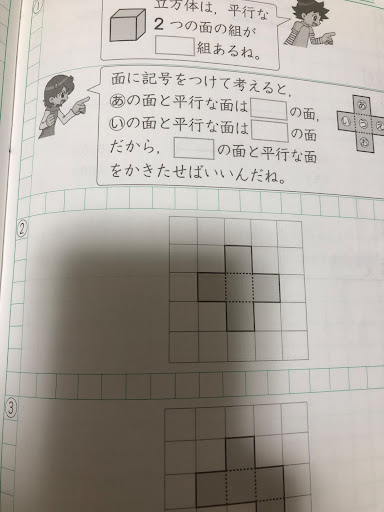 ①
立方体は，平行な
2つの面の組が
組あるね。
面に記号をつけて考えると，
あの面と平行な面は の面，
いの面と平行な面は の面
だから， の面と平行な面
をかきたせばいいんだね。
あ
い う え
お
②
③